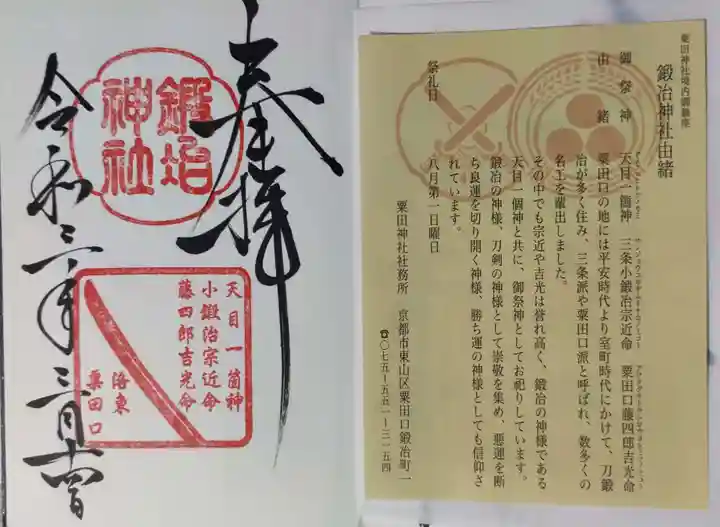 奉拝
鍛冶
神社
天目一箇神
小鍛治宗近命
藤四郎吉光命
洛東
粟田口
令和三年三月十四日
粟田神社境内御鎮座
鍛冶神社由緒
御祭神 天目一箇神 三条小鍛冶宗近命 粟田口藤四郎吉光命
由緒 粟田口の地には平安時代より室町時代にかけて、刀鍛
冶が多く住み、三条派や粟田口派と呼ばれ、数多くの
名工を輩出しました。
その中でも宗近や吉光は誉れ高く、鍛冶の神様である
天目一個神と共に、御祭神としてお祀りしています。
鍛冶の神様、刀剣の神様として崇敬を集め、悪運を断
ち良運を切り開く神様、勝ち運の神様としても信仰さ
れています。
祭礼日 八月第一日曜日
粟田神社社務所 京都市東山区粟田口鍛冶町一
☎〇七五ー五五一ー三一五四